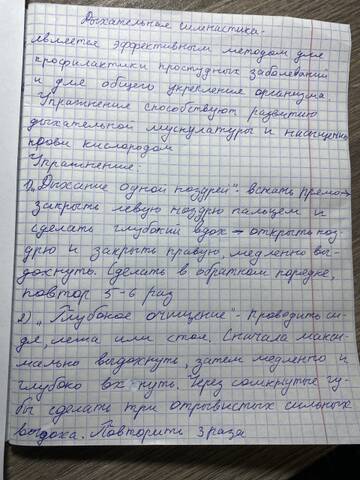 Дыхательная гимнастика.
является эффективным методом для
профилактики простудных заболеваний
и для общего укрепление организма.
Упражнение способствуют развитию
дыхательной мускулатуры и насыщению
крови кислородом
Упражнение:
1) „Дыхание одной ноздрей": встать прямо→
закрыть левую ноздрю пальцем и
сделать глубокий вдох – открыть ноз-
дрю и закрыть правую, медленно вы-
дохнуть. Сделать в обратном порядке,
повтор 5-6 раз
2) „Глубокое очищение" - проводить си-
дя, лежа или стоя. Сначала макси-
мально выдохнуть, затем медленно и
глубоко вхнуть. Через сомкнутые гу-
бы сделать три отрывистых сильных
выдоха. Повторить 3 раза